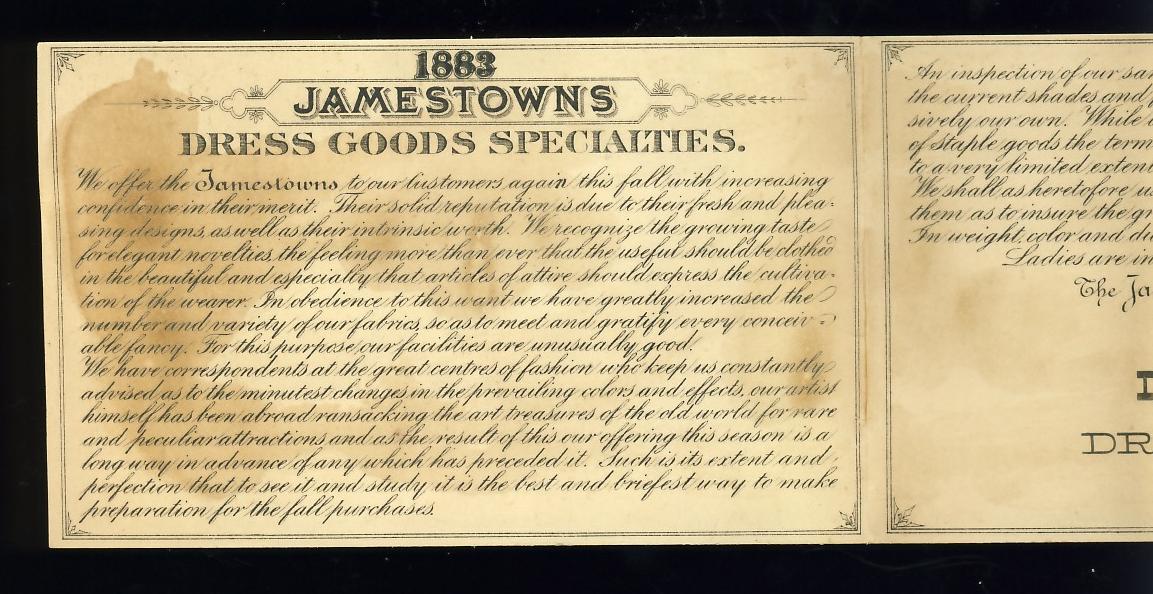 1883
JAMESTOWNS
DRESS GOODS SPECIALTIES.
We offer the Jamestowns to our customers again this fall with increasing
confidence in their merit. Their solid reputation is due to their fresh and plea-
sing designs, as well as their intrinsic worth. We recognize the growing taste
for elegant novelties, the feeling more than ever that the useful should be clothed
in the beautiful and especially that articles of attire should express the cultiva-
tion of the wearer. In obedience to this want we have greatly increased the
number and variety of our fabrics, so as to meet and gratify every conceiv-
able fancy. For this purpose our facilities are unusually good.
We have correspondents at the great centres of fashion who keep us constantly
advised as to the minutest changes in the prevailing colors and effects, our artist
himself has been abroad ransacking the art treasures of the old world for rare
and peculiar attractions and as the result of this our offering this season is a
long way in advance of any which has preceded it. Such is its extent and
perfection that to see it and study it is the best and briefest way to make
preparation for the fall purchases.
An inspection of our sa
the current shades and
sively our own. While
of Staple goods the term
to a very limited extent
We shall as heretofore us
them as to insure the gr
In weight, color and du
Ladies are in
The Ja
DR